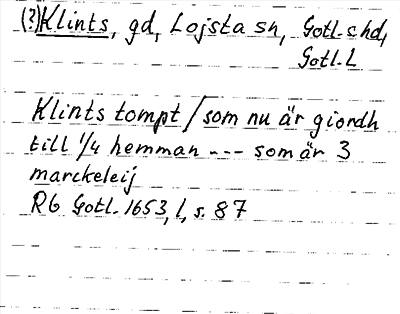 (?) Klints, gd, Lojsta sn, Gotl. s hd,
Gotl. L
Klints tompt / som nu är giordh
till 1/4 hemman --- som är 3
marckeleij
RG Gotl. 1653, l, s. 87